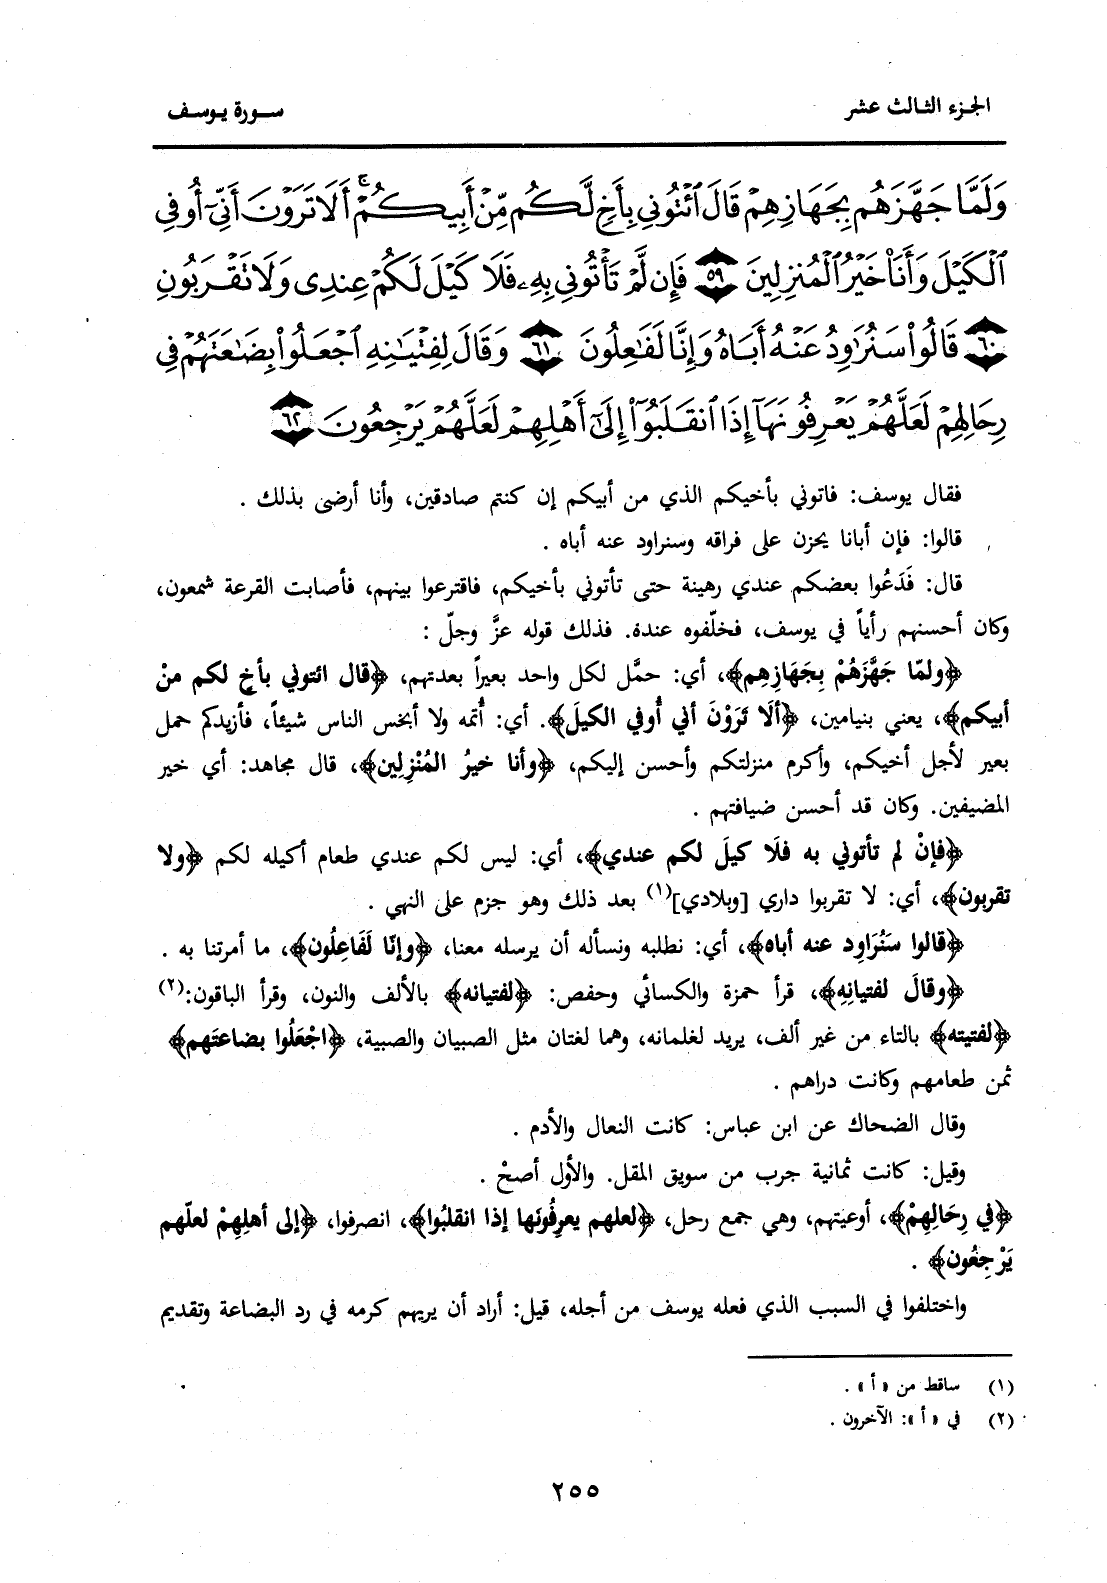 الجزء الثالث عشر
سورة يوسف
وَلَمَّا جَهَّزَهُم بِجَهَازِهِمْ قَالَ ٱئْتُونِي بِأَخٍ لَّكُم مِّنْ أَبِيكُمْ ۚ أَلَا تَرَوْنَ أَنِّيٓ أُوفِي
ٱلْكَيْلَ وَأَنَا۠ خَيْرُ ٱلْمُنزِلِينَ ٥٩ فَإِن لَّمْ تَأْتُونِي بِهِۦ فَلَا كَيْلَ لَكُمْ عِندِى وَلَا تَقْرَبُونِ
٦٠ قَالُوا۟ سَنُرَٰوِدُ عَنْهُ أَبَاهُ وَإِنَّا لَفَٰعِلُونَ ٦١ وَقَالَ لِفِتْيَٰنِهِ ٱجْعَلُوا۟ بِضَٰعَتَهُمْ فِي
رِحَالِهِمْ لَعَلَّهُمْ يَعْرِفُونَهَآ إِذَا ٱنقَلَبُوٓا۟ إِلَىٰٓ أَهْلِهِمْ لَعَلَّهُمْ يَرْجِعُونَ ٦٢
فقال يوسف: فاتوني بأخيكم الذي من أبيكم إن كنتم صادقين، وأنا أرضى بذلك .
قالوا: فإن أبانا يحزن على فراقه وسنراود عنه أباه .
قال: فَدَعُوا بعضكم عندي رهينة حتى تأتوني بأخيكم، فاقترعوا بينهم، فأصابت القرعة شمعون،
وكان أحسنهم رأياً في يوسف، فخلّفوه عندة. فذلك قوله عزَّ وجلّ :
﴿ولمّا جَهَّزَهُمْ بِجَهَازِهِم﴾، أي: حمَّل لكل واحد بعيراً بعدتهم، ﴿قال ائتوني بأخٍ لكم منْ
أبيكم﴾، يعني بنيامين، ﴿ألَا تَرَوْنَ أني أُوفي الكيلَ﴾. أي: أُتمه ولا أبخس الناس شيئاً، فأزيدكم حمل
بعير لأجل أخيكم، وأكرم منزلتكم وأحسن إليكم، ﴿وأنا خيرُ المُنْزِلِين﴾، قال مجاهد: أي خير
المضيفين. وكان قد أحسن ضيافتهم .
﴿فإنْ لم تأتوني به فلَا كيلَ لكم عندي﴾، أي: ليس لكم عندي طعام أكيله لكم ﴿ولا
تقربون﴾، أي: لا تقربوا داري [وبلادي](١) بعد ذلك وهو جزم على النهي .
﴿قالوا سَنُرَاوِد عنه أباه﴾، أي: نطلبه ونسأله أن يرسله معنا، ﴿وإنّا لَفَاعِلُون﴾، ما أمرتنا به .
﴿وقالَ لفتيانِهِ﴾، قرأ حمزة والكسائي وحفص: ﴿لفتيانه﴾ بالألف والنون، وقرأ الباقون:(٢)
﴿لفتيته﴾ بالتاء من غير ألف، يريد لغلمانه، وهما لغتان مثل الصبيان والصبية، ﴿اجْعَلُوا بضاعتَهم﴾
ثمن طعامهم وكانت دراهم .
وقال الضحاك عن ابن عباس: كانت النعال والأدم .
وقيل: كانت ثمانية جرب من سويق المقل. والأول أصحْ .
﴿في رِحَالِهِمْ﴾، أوعيتهم، وهي جمع رحل، ﴿لعلهم يعرِفُونَها إذا انقلبُوا﴾، انصرفوا، ﴿إلى أهلِهِمْ لعلّهم
يَرْجِعُون﴾ .
واختلفوا في السبب الذي فعله يوسف من أجله، قيل: أراد أن يريهم كرمه في رد البضاعة وتقديم
(١) ساقط من «أ» .
(٢) في «أ»: الآخرون .
٢٥٥